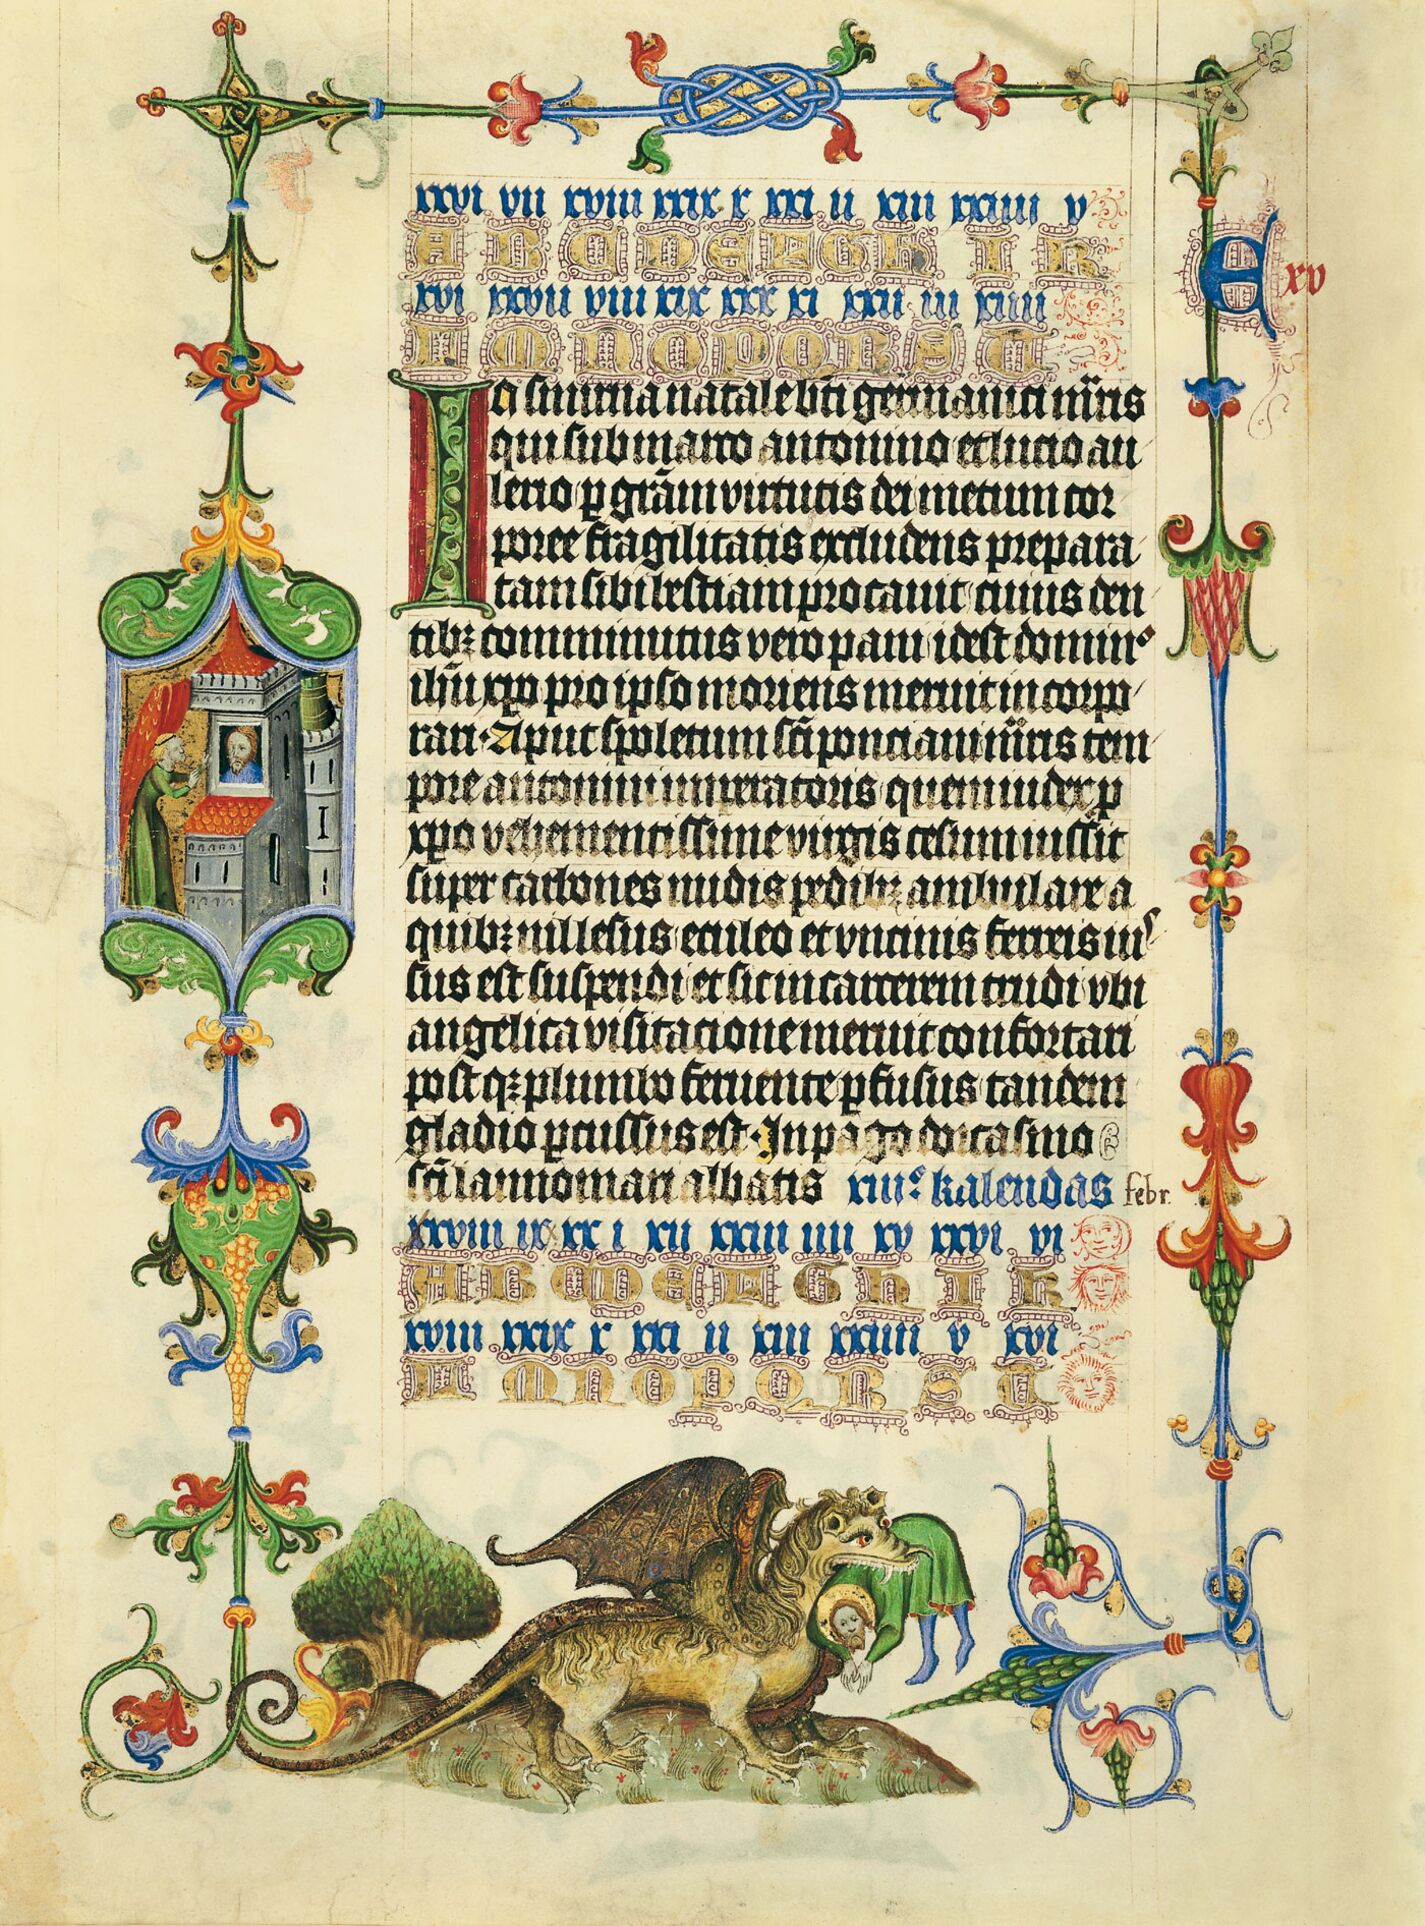 xxvi vii xviii xxix x xxi ii xiii xxiiii v
A B C D E F G H I K
A xv
xvi xxvii viii xix xxx xi xxii iii xiiii
L M N O P Q R S T
In smirna natale bti germanici mris
qui sub marco antonino et lucio au
lerio p grām virtutis dei metum cor
poree fragilitatis excludens prepara
tam sibi bestiam procauit cuius den
tibꝫ comminutus vero pani idest domino
ihū xpo pro ipso moriens meruit incorpo
rari · Aput spoletum sci ponciani mris tem
pore antonini imperatoris quem iudex p
xpo vehementissime virgis cesum iussit
super carbones nudis pedibꝫ ambulare a
quibꝫ nil lesus eculeo et vncinis ferreis ius
sus est suspendi et sic in carcerem trudi vbi
angelica visitacione meruit confortari
post qꝫ plumbo feruente pfusus tandem
gladio pcussus est · In pago dorcasino
sci launomari abbatis xiiii° kalendas febr.
xxviii ix xx i xii xxiii iiii xv xxvi vi
A B C D E F G H I K
xviii xxix x xxi ii xiii xxiiii v xvi
L M N O P Q R S T